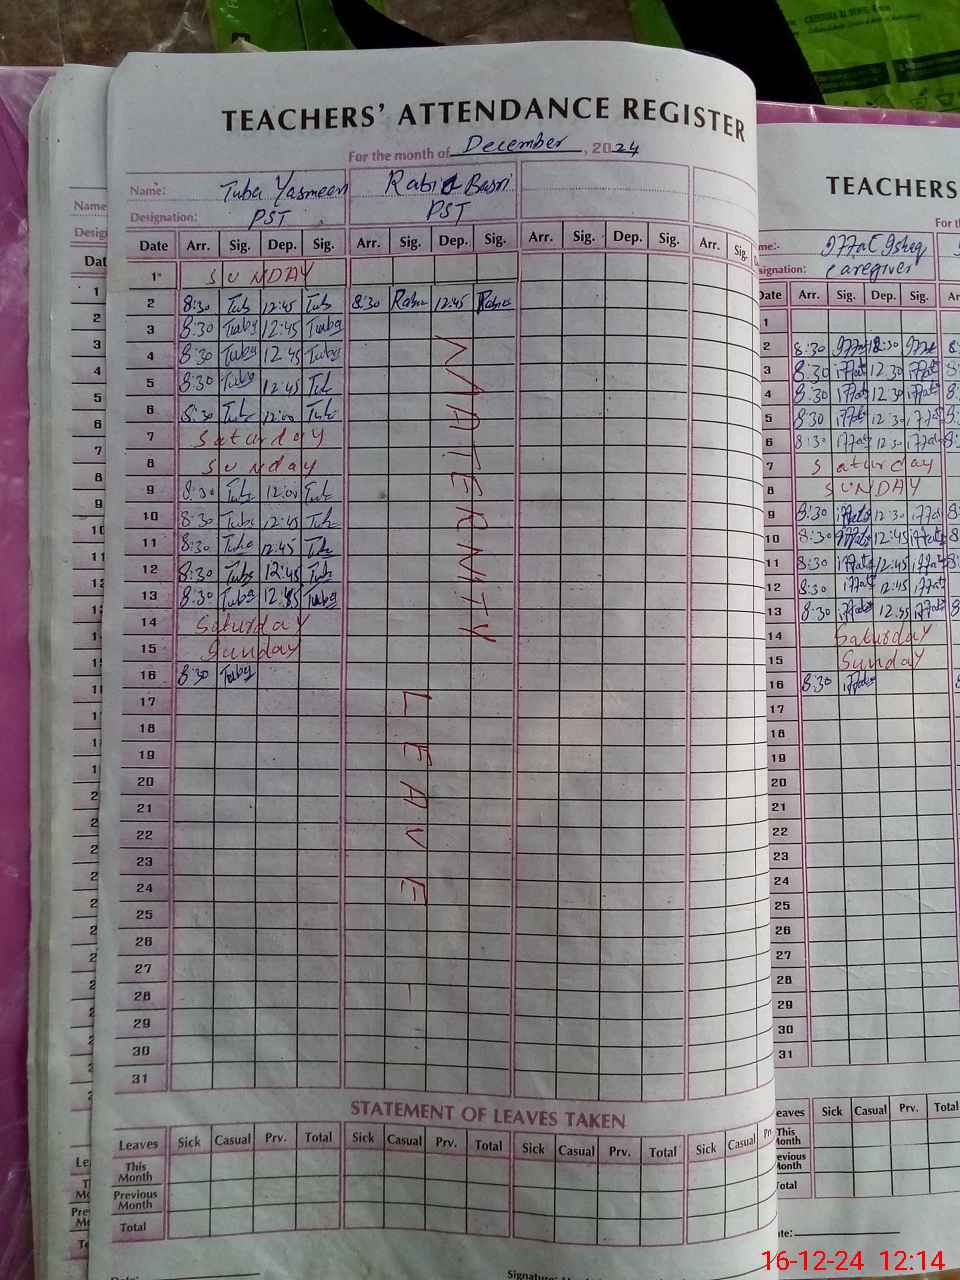 TEACHERS' ATTENDANCE REGISTER
For the month of December, 2024
Name: Tuba Yasmeen Rabia Basri
Designation: PST PST
Date Arr. Sig. Dep. Sig. Arr. Sig. Dep. Sig. Arr. Sig. Dep. Sig. Arr. Sig.
1 SUNDAY
2 8:30 Tub 12:45 Tub 8:30 Rabia 12:45 Rabia
3 8:30 Tuba 12:45 Tuba
4 8:30 Tuba 12:45 Tuba
5 8:30 Tuba 12:45 Tub
6 8:30 Tub 12:00 Tuba
7 Saturday
8 Sunday
9 8:30 Tuba 12:00 Tuba
10 8:30 Tuba 12:45 Tuba
11 8:30 Tuba 12:45 Tuba
12 8:30 Tuba 12:45 Tuba
13 8:30 Tuba 12:45 Tuba
14 Saturday
15 Sunday
16 8:30 Tuba
17
18
19
20
21
22
23
24
25
26
27
28
29
30
31
MATERNITY
LEAVE
STATEMENT OF LEAVES TAKEN
Leaves Sick Casual Prv. Total Sick Casual Prv. Total Sick Casual Prv. Total Sick Casual
This Month
Previous Month
Total
TEACHERS
Iffat Ishaq
Caregiver
Date Arr. Sig. Dep. Sig.
1
2 8:30 Iffat 12:30 Iffat
3 8:30 iffat 12:30 iffat
4 8:30 iffat 12:30 iffat
5 8:30 iffat 12:30 iffat
6 8:30 iffat 12:30 iffat
7 Saturday
8 SUNDAY
9 8:30 iffat 12:30 iffat
10 8:30 iffat 12:45 iffat
11 8:30 iffat 12:45 iffat
12 8:30 iffat 12:45 iffat
13 8:30 iffat 12:45 iffat
14 Saturday
15 Sunday
16 8:30 iffat
17
18
19
20
21
22
23
24
25
26
27
28
29
30
31
Sick Casual Prv. Total
This
Total
16-12-24 12:14